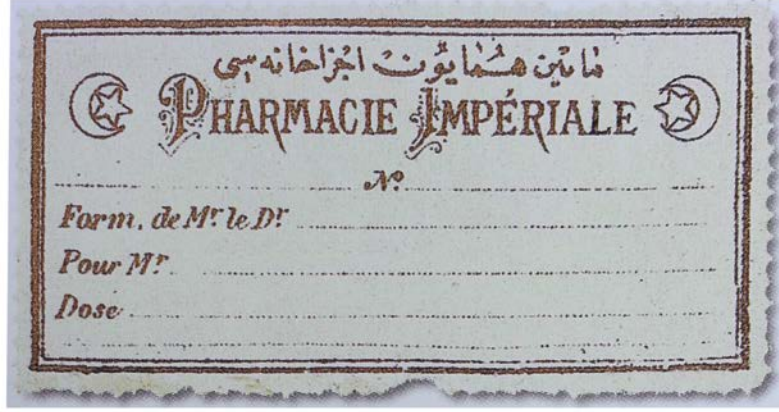 مابین همایون اجزاخانه سی
PHARMACIE IMPÉRIALE
Nº
Form. de Mr le Dr
Pour Mr
Dose